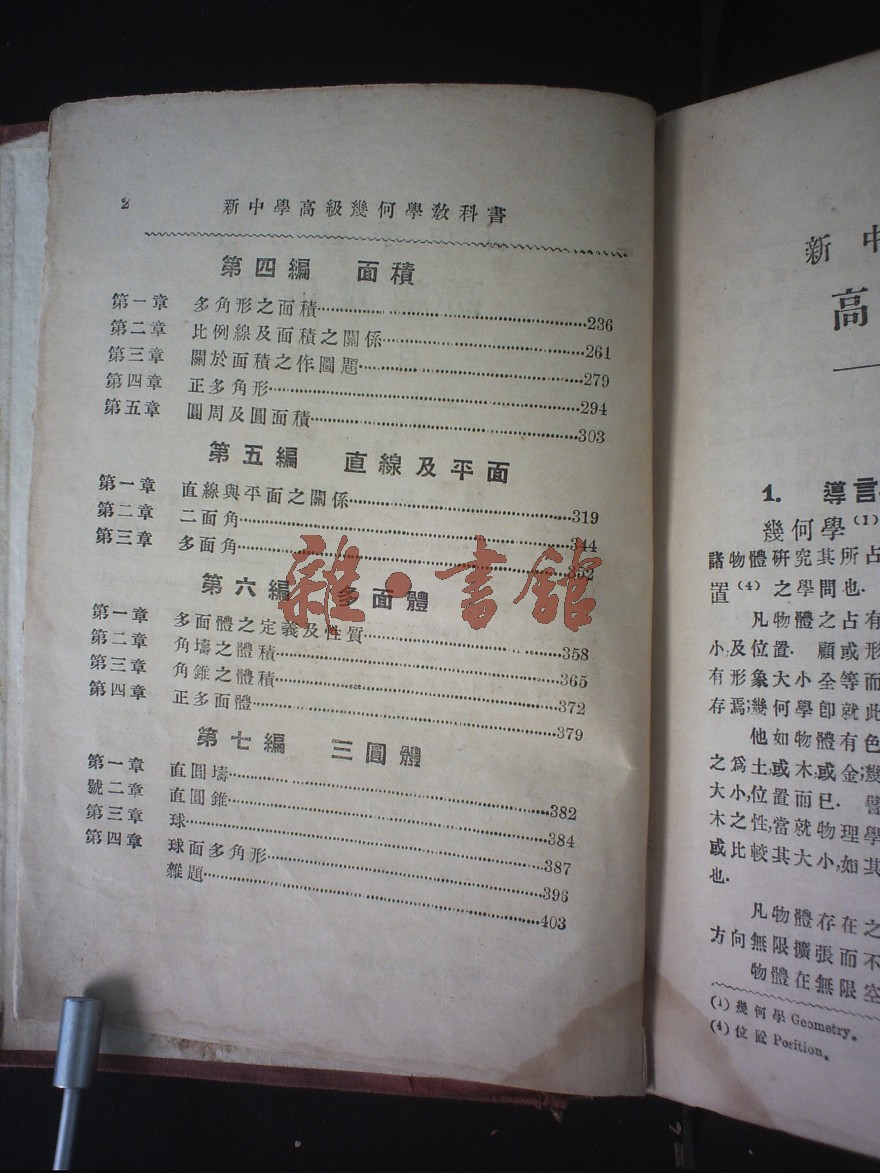 2 新中學高級幾何學教科書
第四編 面積
第一章 多角形之面積 236
第二章 比例線及面積之關係 261
第三章 關於面積之作圖題 279
第四章 正多角形 294
第五章 圓周及圓面積 303
第五編 直線及平面
第一章 直線與平面之關係 319
第二章 二面角 344
第三章 多面角 352
第六編 多面體
第一章 多面體之定義及性質 358
第二章 角壔之體積 365
第三章 角錐之體積 372
第四章 正多面體 379
第七編 三圓體
第一章 直圓壔 382
號二章 直圓錐 384
第三章 球 387
第四章 球面多角形 396
雜題 403
雜·書館
新中
高
1. 導言
幾何學(1)
諸物體硏究其所占
置(4)之學問也.
凡物體之占有
小,及位置. 顧或形
有形象大小全等而
存焉;幾何學卽就此
他如物體有色
之爲土,或木,或金;幾
大小,位置而已. 譬
木之性,當就物理學
或比較其大小,如其
也.
凡物體存在之
方向無限擴張而不
物體在無限空
(1) 幾何學 Geometry.
(4) 位置 Position.